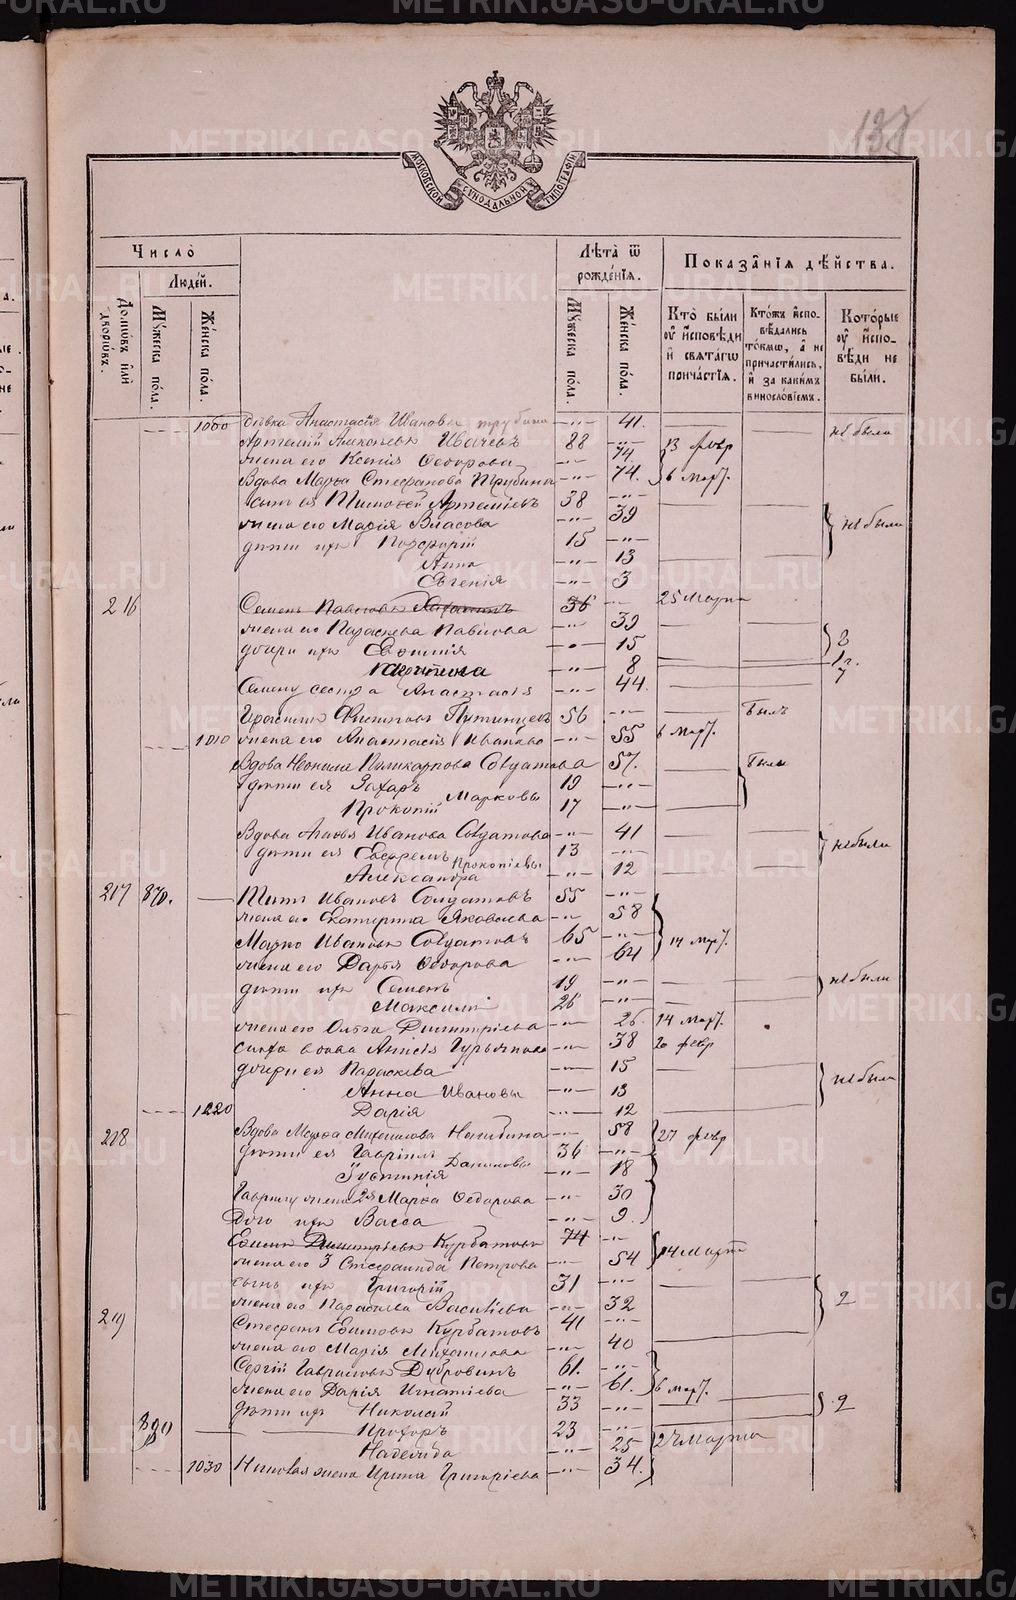 137
МОСКОВСКОЙ СѴНОДАЛЬНОЙ ТИПОГРАФІИ
Число
Людей.
Домовъ или дворовъ.
Мужеска пола.
Женска пола.
Лѣта ѿ рожденія.
Мужеска пола.
Женска пола.
Показанія дѣйства.
Кто были у исповѣди и святаго причастія.
Ктожъ исповѣдались токмо, а не причастились, и за какимъ винословіемъ.
Которые у исповѣди не были.
1000 Дѣвка Анастасія Иванова Трубина 41. не были
Артемій Алексѣевъ Ивачевъ 88 13 февр
жена его Ксенія Ѳедорова 74
Вдова Марѳа Стефанова Трубина 74. 6 март.
сынъ ея Тимоѳей Артеміевъ 38
жена его Марія Власова 39 не были
дѣти ихъ Порфирій 15
Анна 13
Евгенія 3
216 Семенъ Павловъ 36 25 Марта
жена его Параскева Павлова 39
дочери ихъ Евѳимія 15 2
8 1 г.
Семену сестра Анастасія 44.
Герасимъ Филиповъ Путинцевъ 56 былъ
1010 жена его Анастасія Иванова 55 6 март.
Вдова Неонила Поликарпова Солдатова 57. были
дѣти ея Захаръ 19
Прокопій Марковы 17
Вдова Агаѳья Иванова Солдатова 41
дѣти ея Евфремъ Прокопіевы 13 не были
Александра 12
217 870. Титъ Ивановъ Солдатовъ 55
жена его Екатерина Яковлева 58
Марко Ивановъ Солдатовъ 65 14 март.
жена его Дарья Ѳедорова 64
дѣти ихъ Семенъ 19 не были
Максимъ 26
жена его Ольга Димитріева 26. 14 март.
сноха вдова Анисія Гурьянова 38 20 февр
дочери ея Параскева 15
Анна Ивановы 13 не были
1220 Дарія 12
218 Вдова Марѳа Михаилова Нагибина 58 27 февр
дѣти ея Гавріилъ 36
Іустинія Даниловы 18
Гаврилу жена 2я Марѳа Ѳедорова 30
Дочь ихъ Васса 9.
Евѳимъ Димитріевъ Курбатовъ 74
жена его 3 Стефанида Петрова 54 14 Марта
сынъ ихъ Григорій 31
жена его Параскева Васильева 32 2
219 Стефанъ Евѳимовъ Курбатовъ 41
жена его Марія Михаилова 40
Сергій Гавриловъ Дубровинъ 61.
жена его Дарія Игнатіева 61. 6 март.
дѣти ихъ Николай 33 2
Прохоръ 23
Надежда 25 27 Марта
1030 Николая жена Ирина Григоріева 34.
METRIKI.GASO-URAL.RU